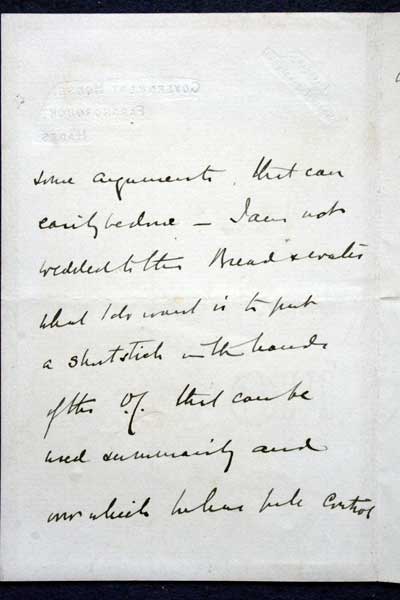 some arguments, that can
easily be done — I am not
wedded to the Bread & water
what I do want is to put
a short stick in the hands
of the O/. that can be
used summarily and
over which he has full control